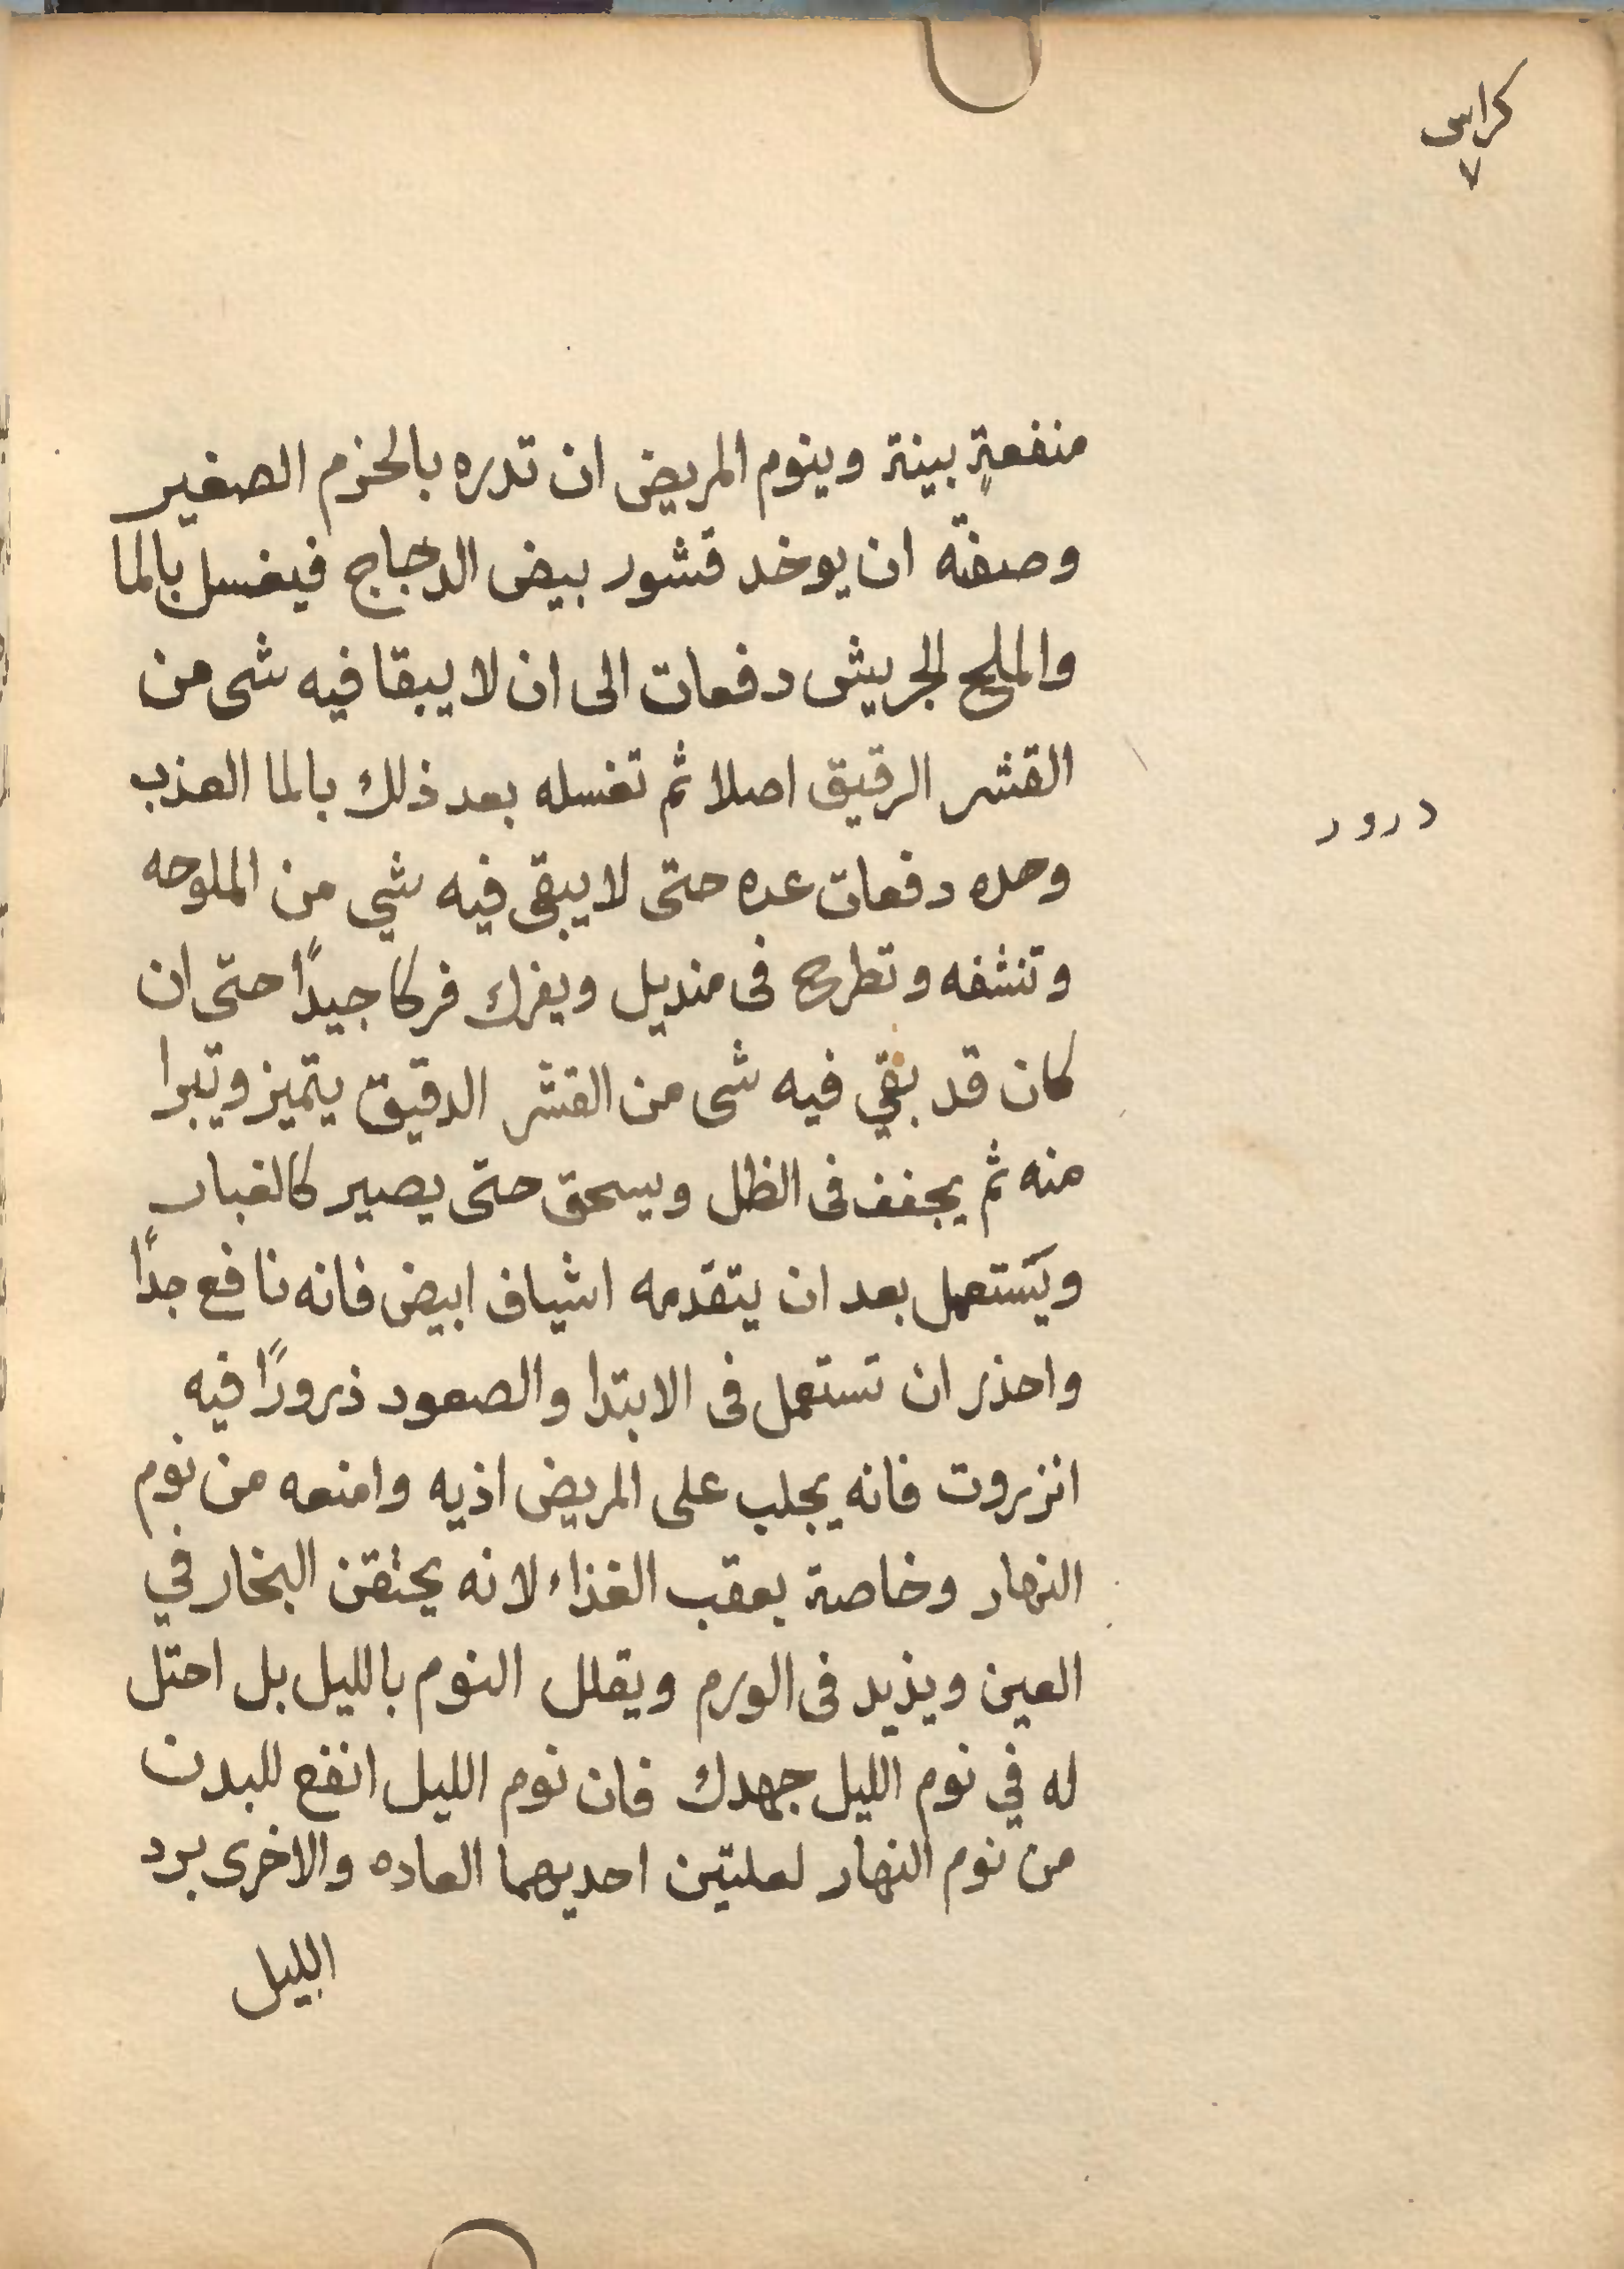 كراس
٧
منفعةٍ بينة وينوم المريض ان تدره بالحزم الصغير
وصفته ان يوخد قشور بيض الدجاج فيغسل بالما
والملح الجريش دفعات الى ان لا يبقا فيه شى من
القشر الرقيق اصلا ثم تغسله بعد ذلك بالما العذب
درور
وحده دفعات عده حتى لا يبقى فيه شي من الملوحه
وتنشفه وتطرح فى منديل ويفرك فركا جيدًا حتى ان
كان قد بقي فيه شى من القشر الدقيق يتميز وتبرا
منه ثم يجفف فى الظل ويسحق حتى يصير كالغبار
ويستعمل بعد ان يتقدمه اشياف ابيض فانه نافع جدًا
واحذر ان تستعمل فى الابتدا والصعود ذرورًا فيه
انزروت فانه يجلب على المريض اذيه وامنعه من نوم
النهار وخاصة بعقب الغذاء لانه يحتقن البخار في
العين ويذيد فى الورم ويقلل النوم بالليل بل احتل
له في نوم الليل جهدك فان نوم الليل انفع للبدن
من نوم النهار لعلتين احديهما العاده والاخرى برد
الليل